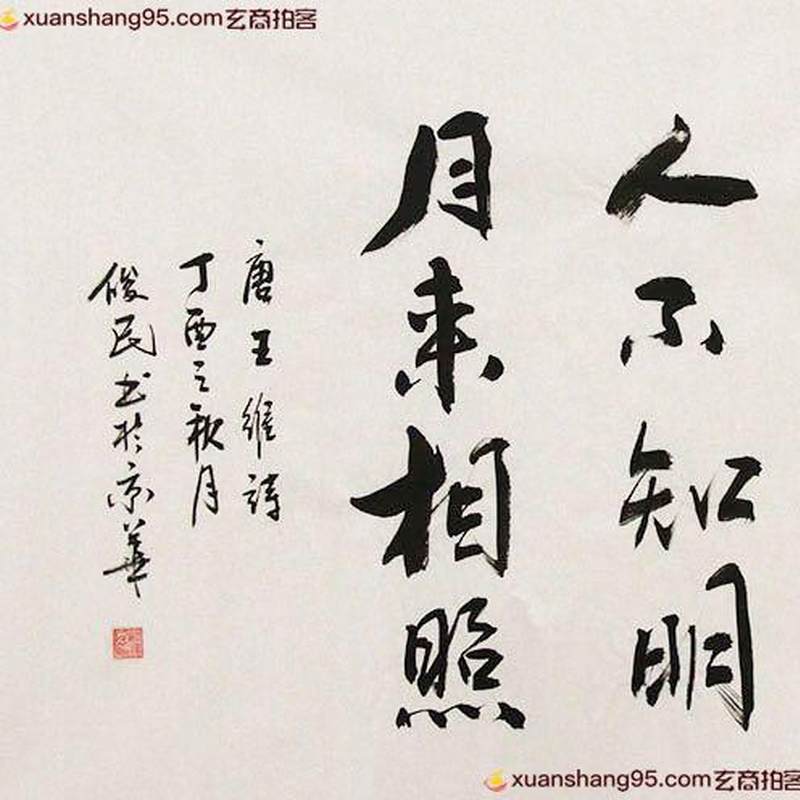 xuanshang95.com玄商拍客
人不知明
月来相照
唐王维诗
丁酉之秋月
俊民书於京華
xuanshang95.com玄商拍客